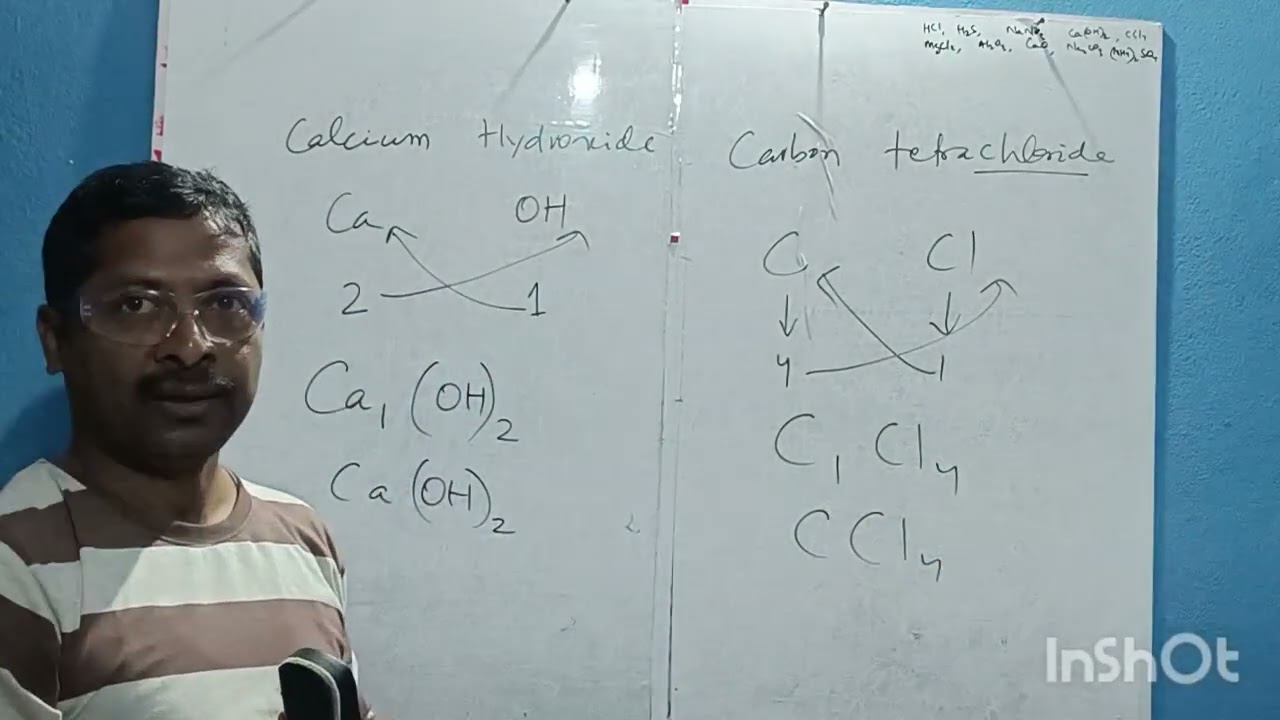 HCl, H₂S, Ca(OH)₂, CCl₄
MgCl₂, Al₂O₃, CaO, Na₂CO₃ (NH₄)₂SO₄
Calcium Hydroxide
Ca OH
2 1
Ca₁ (OH)₂
Ca (OH)₂
Carbon tetrachloride
C Cl
4 1
C₁ Cl₄
C Cl₄
InShOt